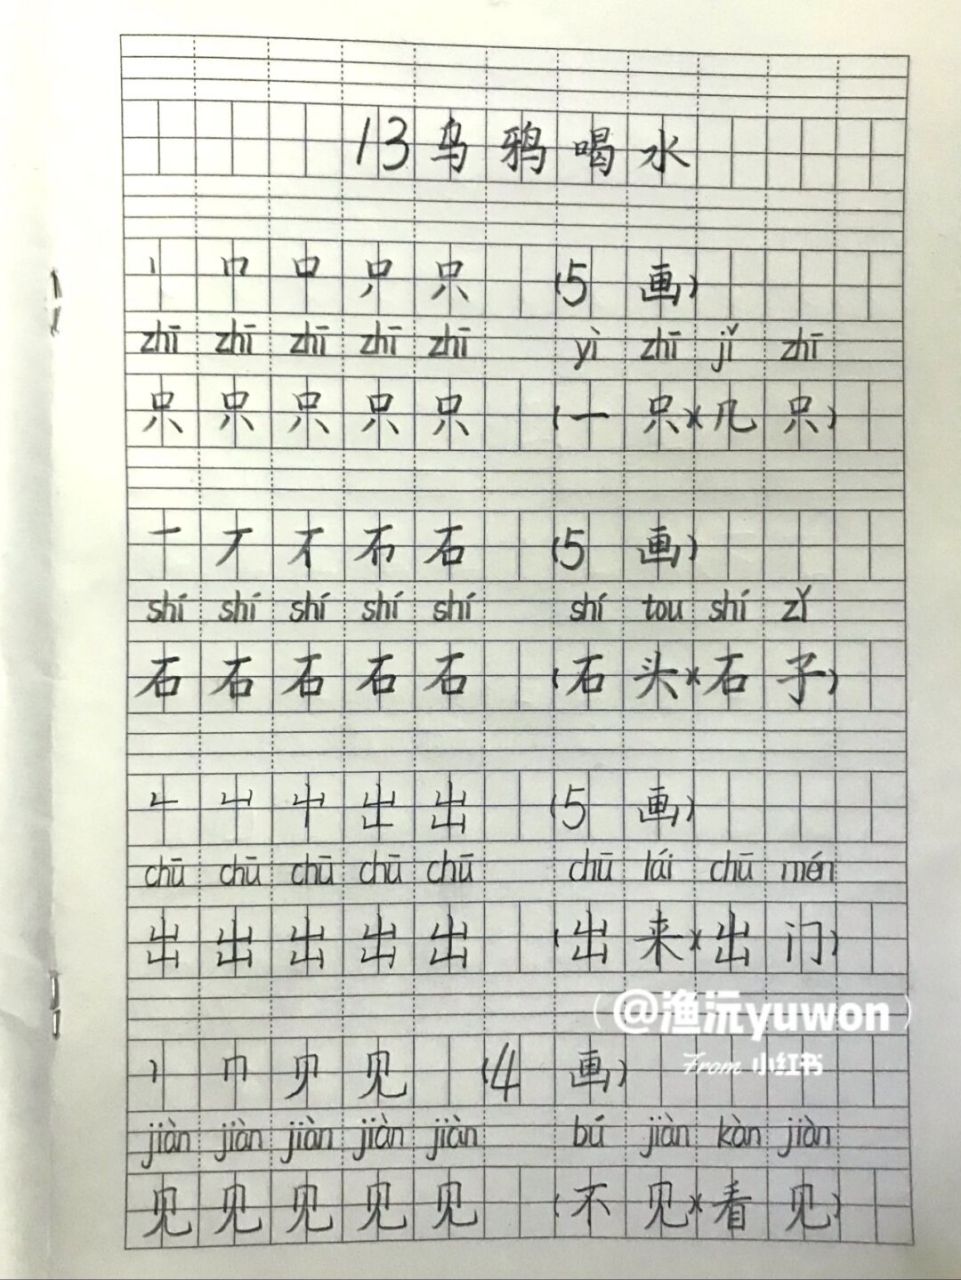 13乌鸦喝水
丨 口 口 只 只 (5画)
zhī zhī zhī zhī zhī yì zhī jǐ zhī
只 只 只 只 只 (一只)(几只)
一 丆 不 石 石 (5画)
shí shí shí shí shí shí tou shí zǐ
石 石 石 石 石 (石头)(石子)
出 出 (5画)
chū chū chū chū chū chū lái chū mén
出 出 出 出 出 (出来)(出门)
丨 冂 见 (4画)
jiàn jiàn jiàn jiàn jiàn bú jiàn kàn jiàn
见 见 见 见 见 (不见)(看见)
(@渔沅yuwon)
From 小红书